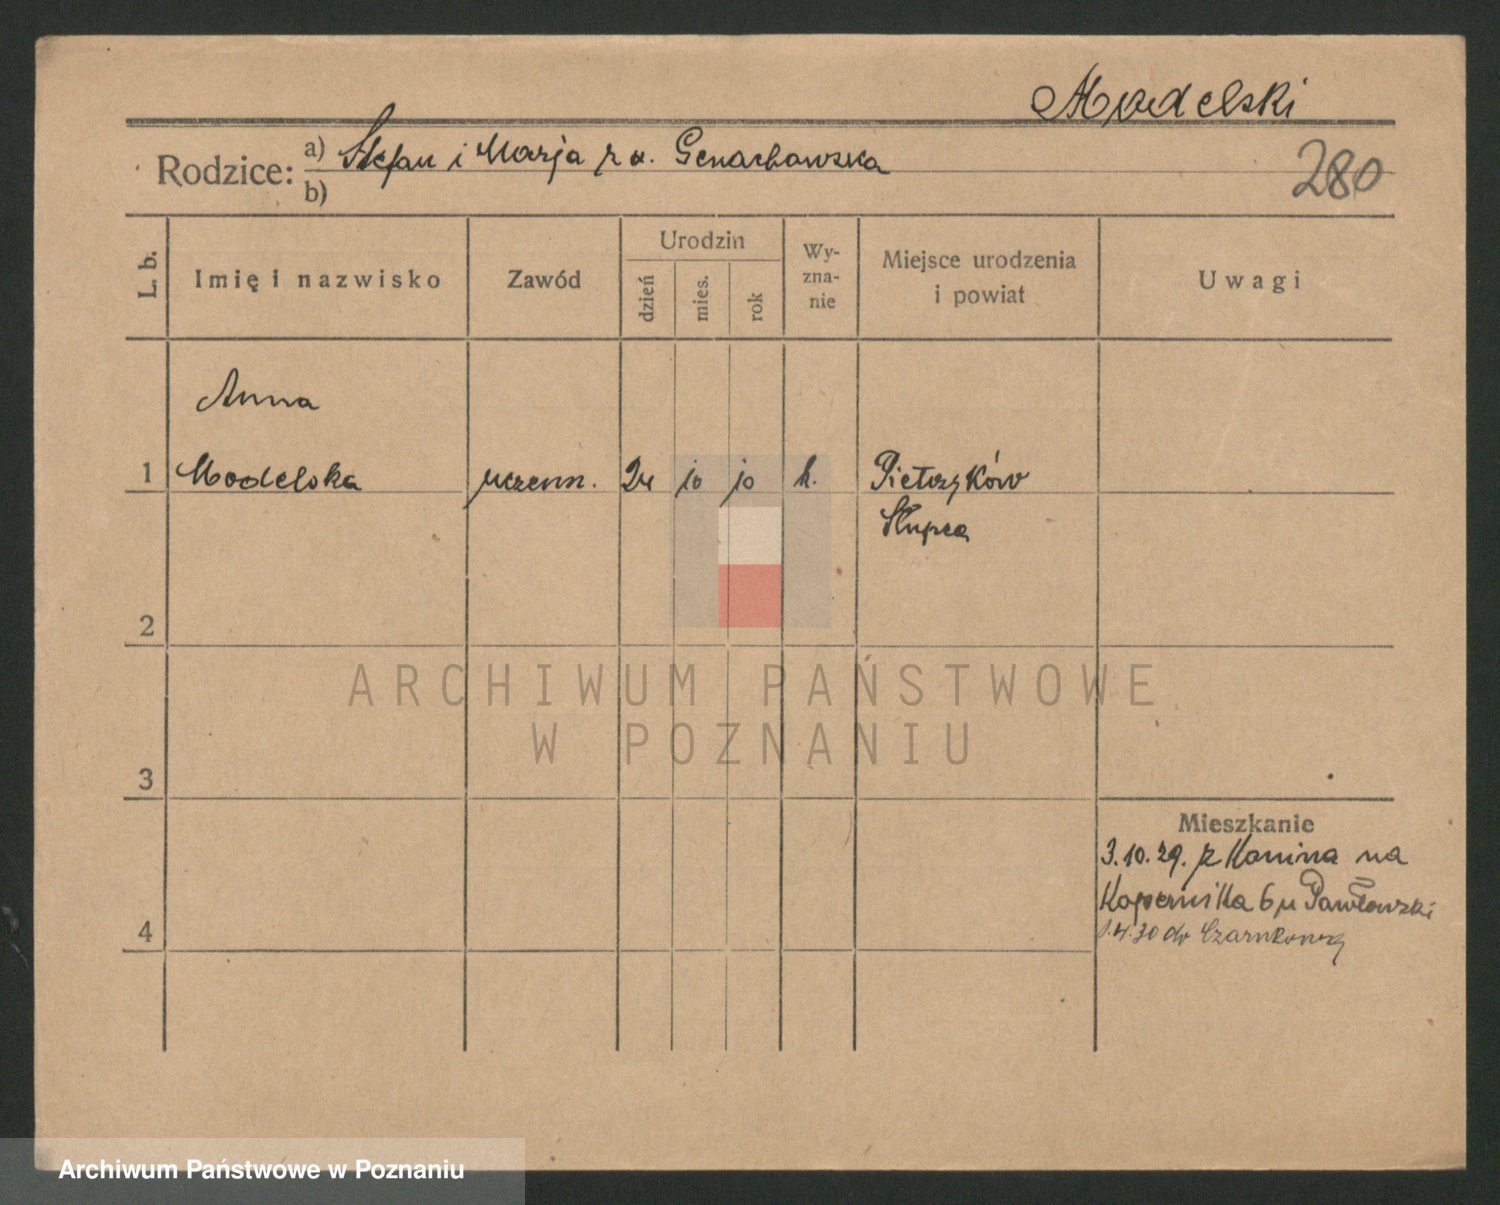 Modelski
Rodzice: a) Stefan i Marja z d. Genachowska
b)
280
L. b.
Imię i nazwisko
Zawód
Urodzin
dzień
mies.
rok
Wy-
zna-
nie
Miejsce urodzenia
i powiat
Uwagi
Anna
1 Modelska uczenn. 24 10 10 k. Pietrzyków
Słupca
2
ARCHIWUM PAŃSTWOWE
W POZNANIU
3
Mieszkanie
3.10.29. z Konina na
Kopernika 6 u Pawłowski
4
1.4.30 do Czarnkowa
Archiwum Państwowe w Poznaniu